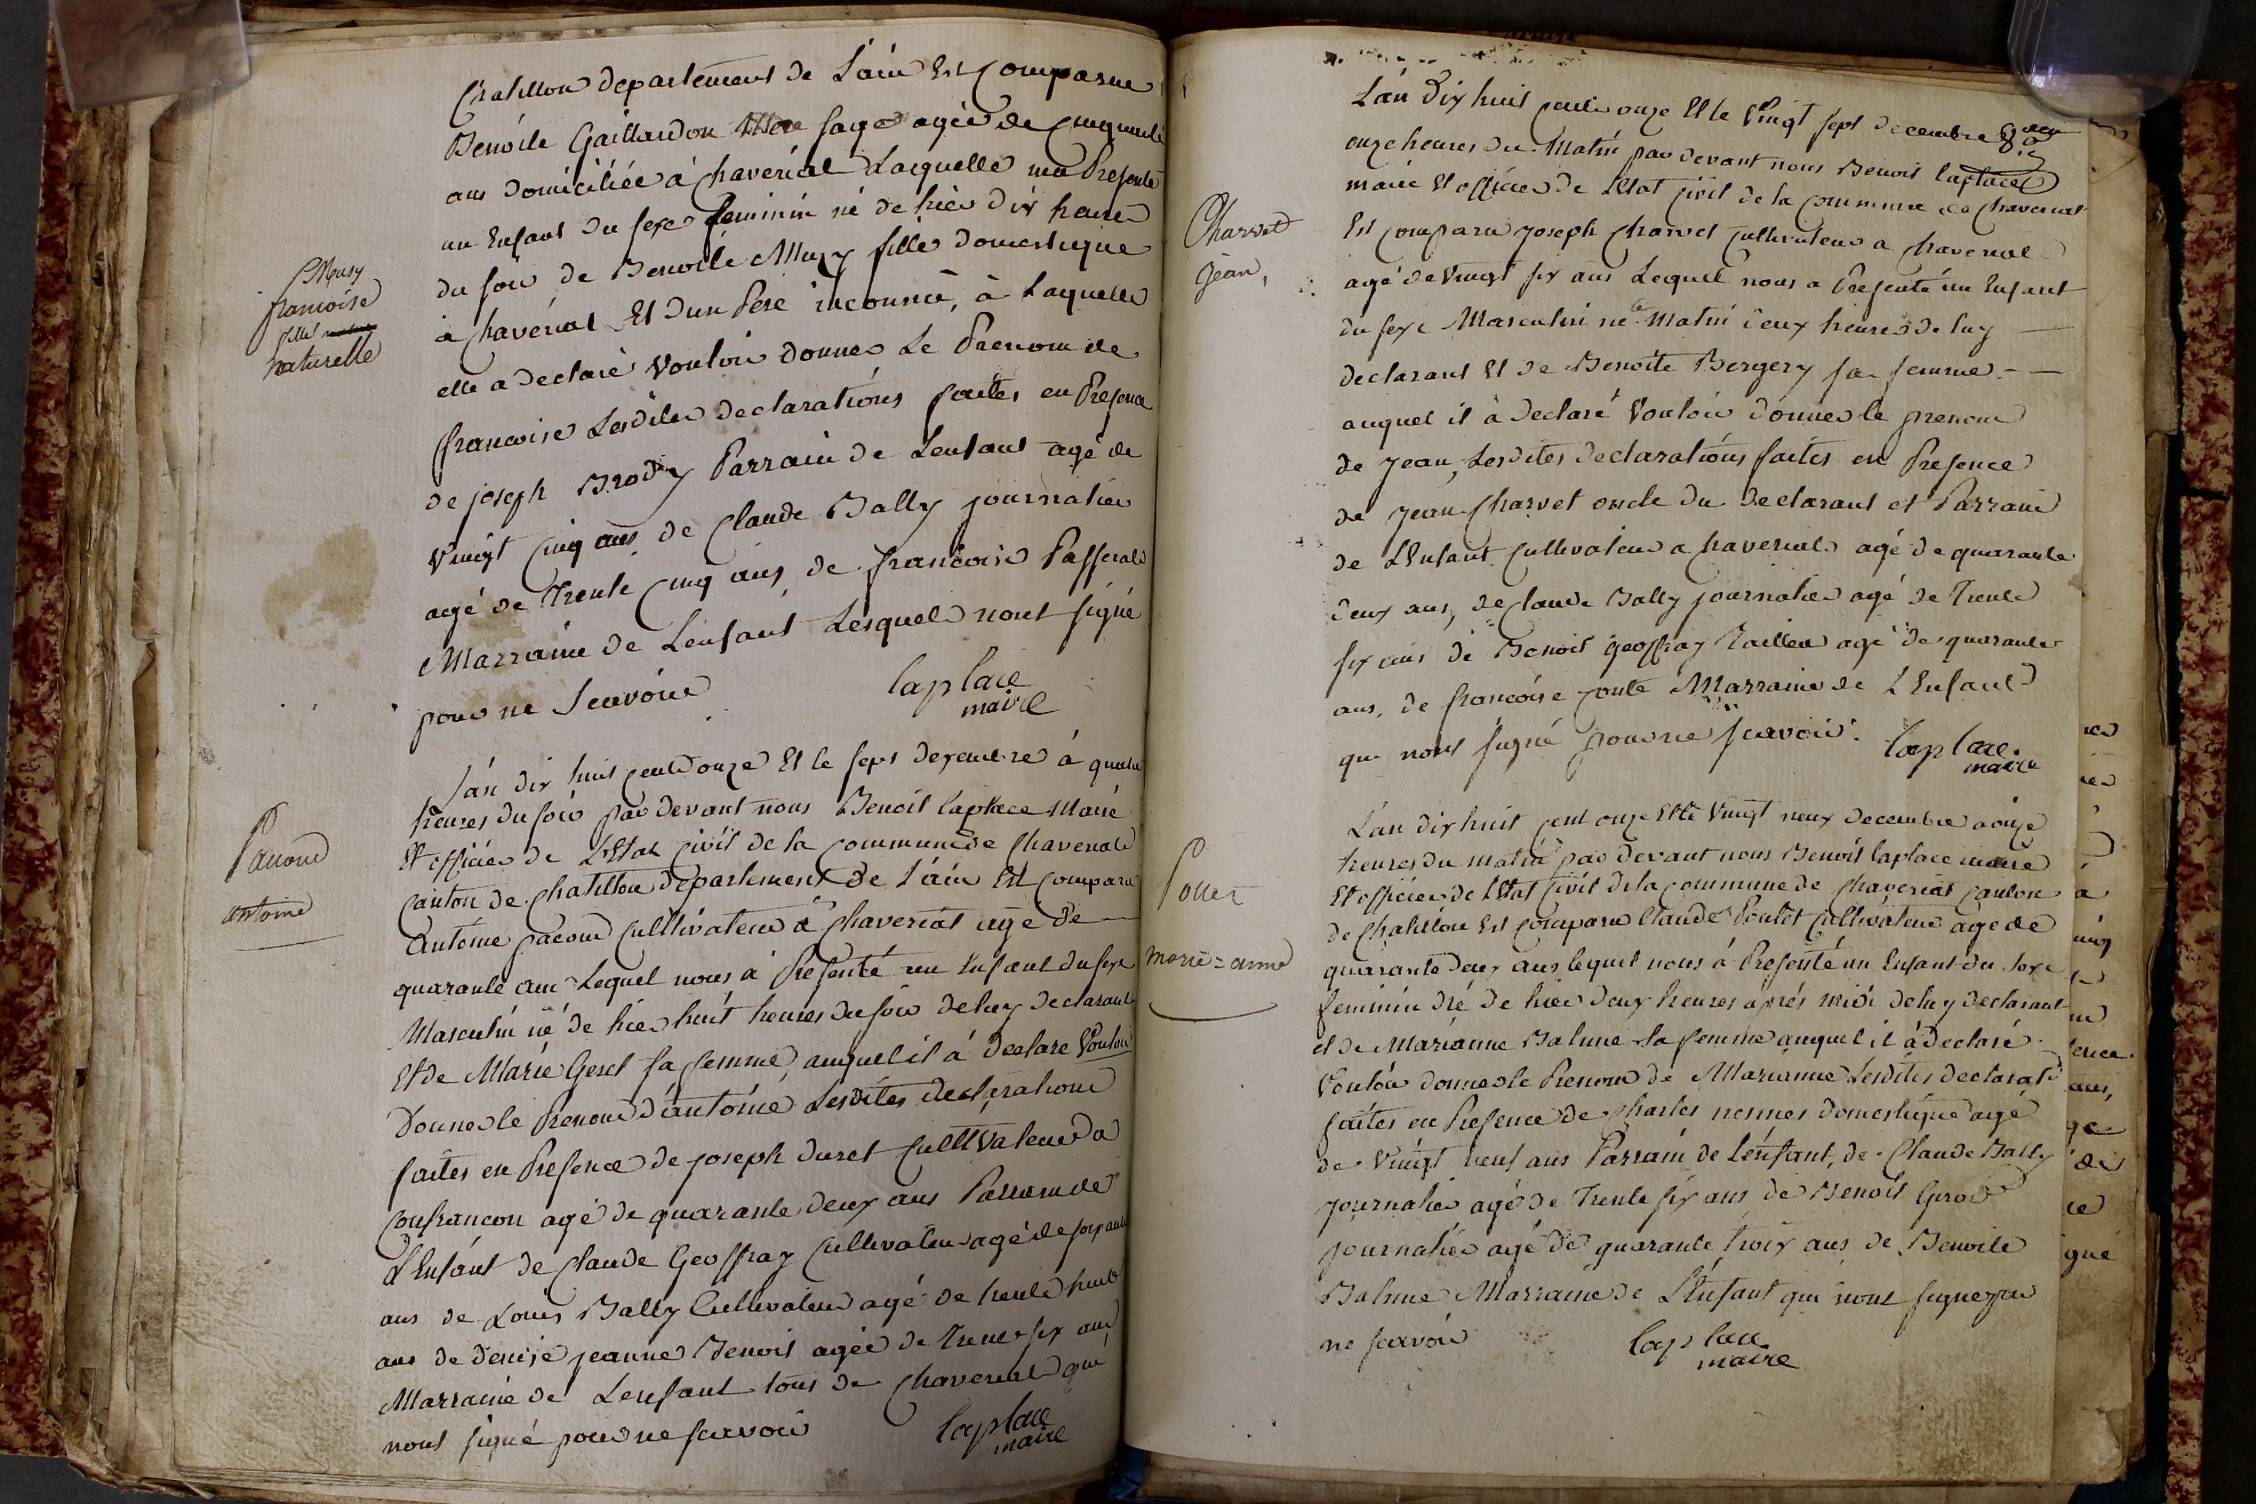 Chatillon departement de L'ain Est Comparue
Benoite Gaillardon sage agée de Cinquante
ans domiciliée à Chaveriat Laquelle ma Presenté
un Enfant du sexe feminin né de hier dix heures
du soir de Benoite Muzy fille domestique
à Chaveriat Et dun Pere inconnu, à Laquelle
elle a declaré Vouloir donner Le Prenom de
francoise Lesdites declarations faites en Presence
de joseph Brody Parrain de Lenfant agé de
Vingt Cinq ans de Claude Bally journalier
agé de Trente Cinq ans, de francoise Passerat
Marraine de Lenfant Lesquels nont signé
pour ne Scavoir
laplace
maire
Musy
francoise
fille
naturelle
L'an dix huit cent onze Et le sept decembre à quatre
heures du soir par devant nous Benoit laplace Maire
Et officier de L'Etat civil de la commune de Chaveriat
canton de Chatillon departement de L'ain Est Comparu
Antoine pacoud Cultivateur à Chaveriat agé de
quarante ans Lequel nous à Presenté un Enfant du sexe
Masculin né de hier huit heures du soir de luy declarant
Et de Marie Geret sa femme auquel il à declare Vouloir
Donner le Prenom d'antoine Lesdites declarations
faites en Presence de joseph duret Cultivateur a
Confrancon agé de quarante deux ans Parrain de
L'Enfant de Claude Geoffray Cultivateur agé de soixante
ans de Louis Bally Cultivateur agé de trente huit
ans de denise jeanne Benoit agée de Trente six ans
Marraine de Lenfant tous de Chaveriat qui
nont signé pour ne scavoir
laplace
maire
Pacoud
antoine
L'an Dix huit cent onze Et le Vingt sept decembre
onze heures du Matin par devant nous Benoit laplace
maire Et officier de L'Etat Civil de la commune de Chaveriat
Est comparu joseph Charvet Cultivateur a Chaveriat
agé de Vingt six ans Lequel nous a Presenté un Enfant
du sexe Masculin né ce Matin deux heures de luy
declarant Et de Benoite Bergery sa femme
auquel il à declaré Vouloir donner le prenom
de jean, Lesdites declarations faites en Presence
de jean Charvet oncle du declarant et Parrain
de L'Enfant Cultivateur a Chaveriat agé de quarante
deux ans, de Claude Bally journalier agé de Trente
six ans de Benoit geoffray Tailleur agé de quarante
ans, de francoise Marraine de L'Enfant
qui nont signé pour ne scavoir.
laplace
maire
Charvet
jean,
L'an dix huit cent onze Et le Vingt neuf decembre a onze
heures du matin par devant nous Benoit laplace maire
Et officier de L'Etat Civil de la commune de Chaveriat canton
de Chatillon Est comparu Claude Poulet Cultivateur agé de
quarante deux ans lequel nous à Presenté un Enfant du sexe
feminin né de hier deux heures après midi de luy declarant
et de Marianne Balme sa femme auquel il à declaré
Vouloir donner le Prenom de Marianne Lesdites declarat
faites en Presence de Charles nesmes domestique agé
de Vingt neuf ans Parrain de L'enfant, de Claude Bally
journalier agé de Trente six ans de Benoit
journalier agé de quarante trois ans de Benoite
Balme Marraine de L'Enfant qui nont signé pour
ne scavoir
laplace
maire
marie=anne